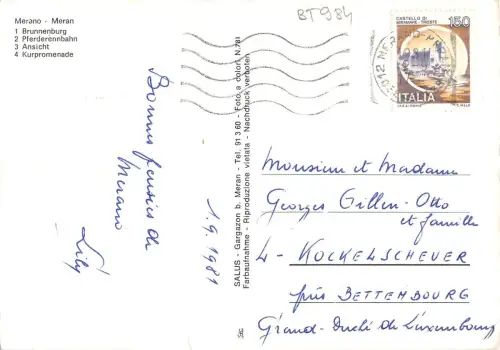 Merano - Meran
1 Brunnenburg
2 Pferderennbahn
3 Ansicht
4 Kurpromenade
BT984
CASTELLO DI
MIRAMARE · TRIESTE
150
ITALIA
39012 MER
Bonnes pensées de
Merano
Lily
1.9.1981
SALUS - Gargazon b. Meran - Tel. 91 3 60 - Foto a colori N. 781
Farbaufnahme - Riproduzione vietata - Nachdruck verboten
Monsieur et Madame
Georges Gillen-Otto
et famille
L - KOCKELSCHEUER
près BETTEMBOURG
Grand-Duché de Luxembourg